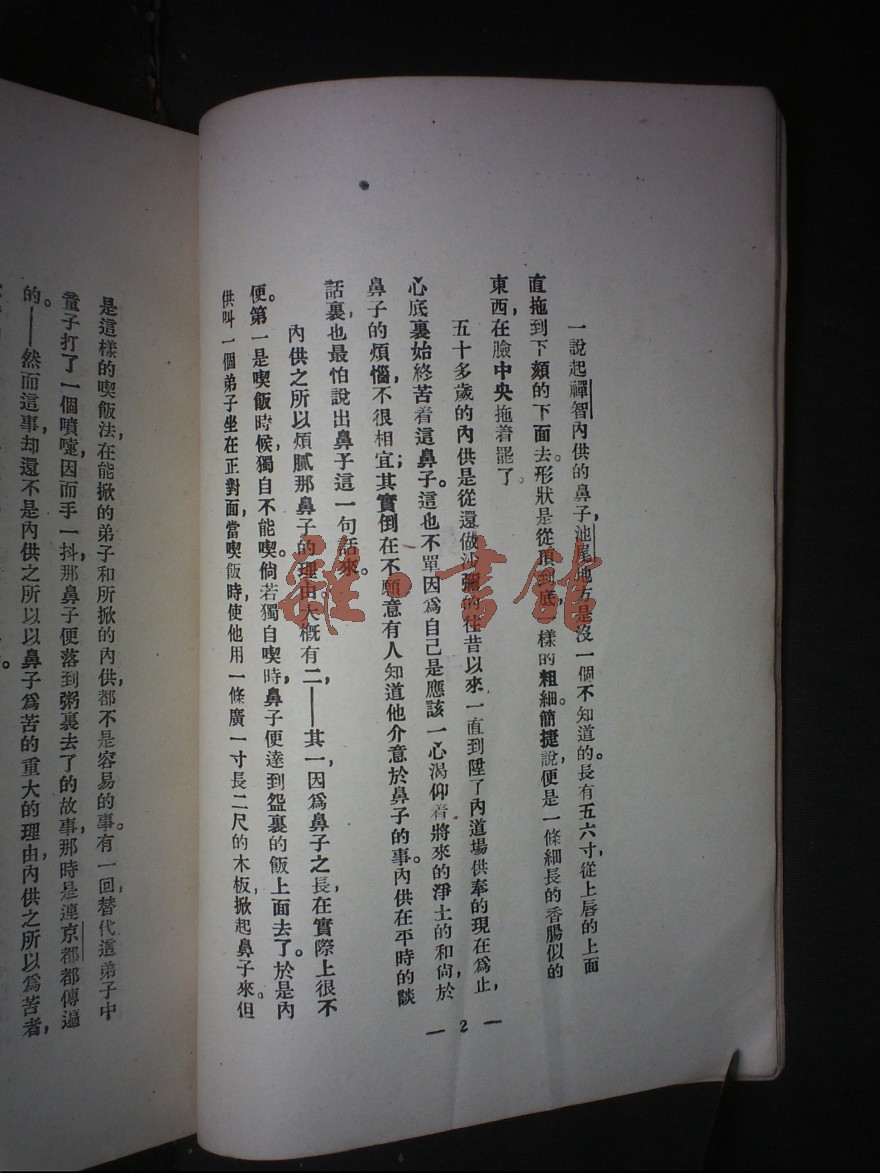 一說起禪智內供的鼻子，池尾地方是沒一個不知道的。長有五六寸，從上唇的上面
直拖到下頦的下面去。形狀是從頂到底，樣的粗細。簡捷說，便是一條細長的香腸似的
東西，在臉中央拖着罷了。
五十多歲的內供是從還做沙彌的往昔以來，一直到陞了內道場供奉的現在為止，
心底裏始終苦着這鼻子。這也不單因爲自己是應該一心渴仰着將來的淨土的和尙，於
鼻子的煩惱，不很相宜；其實倒在不願意有人知道他介意於鼻子的事。內供在平時的談
話裏，也最怕說出鼻子這一句話來。
內供之所以煩膩那鼻子的理由，大槪有二，——其一，因爲鼻子之長，在實際上很不
便。第一是喫飯時候，獨自不能喫。倘若獨自喫時，鼻子便達到盌裏的飯上面去了。於是內
供叫一個弟子坐在正對面，當喫飯時，使他用一條廣一寸長二尺的木板，掀起鼻子來。但
— 2 —
是這樣的喫飯法，在能掀的弟子和所掀的內供，都不是容易的事。有一回，替代這弟子中
童子打了一個噴嚏，因而手一抖，那鼻子便落到粥裏去了的故事，那時是連京都都傳遍
的。——然而這事，却還不是內供之所以以鼻子爲苦的重大的理由。內供之所以爲苦者，
雜·書館